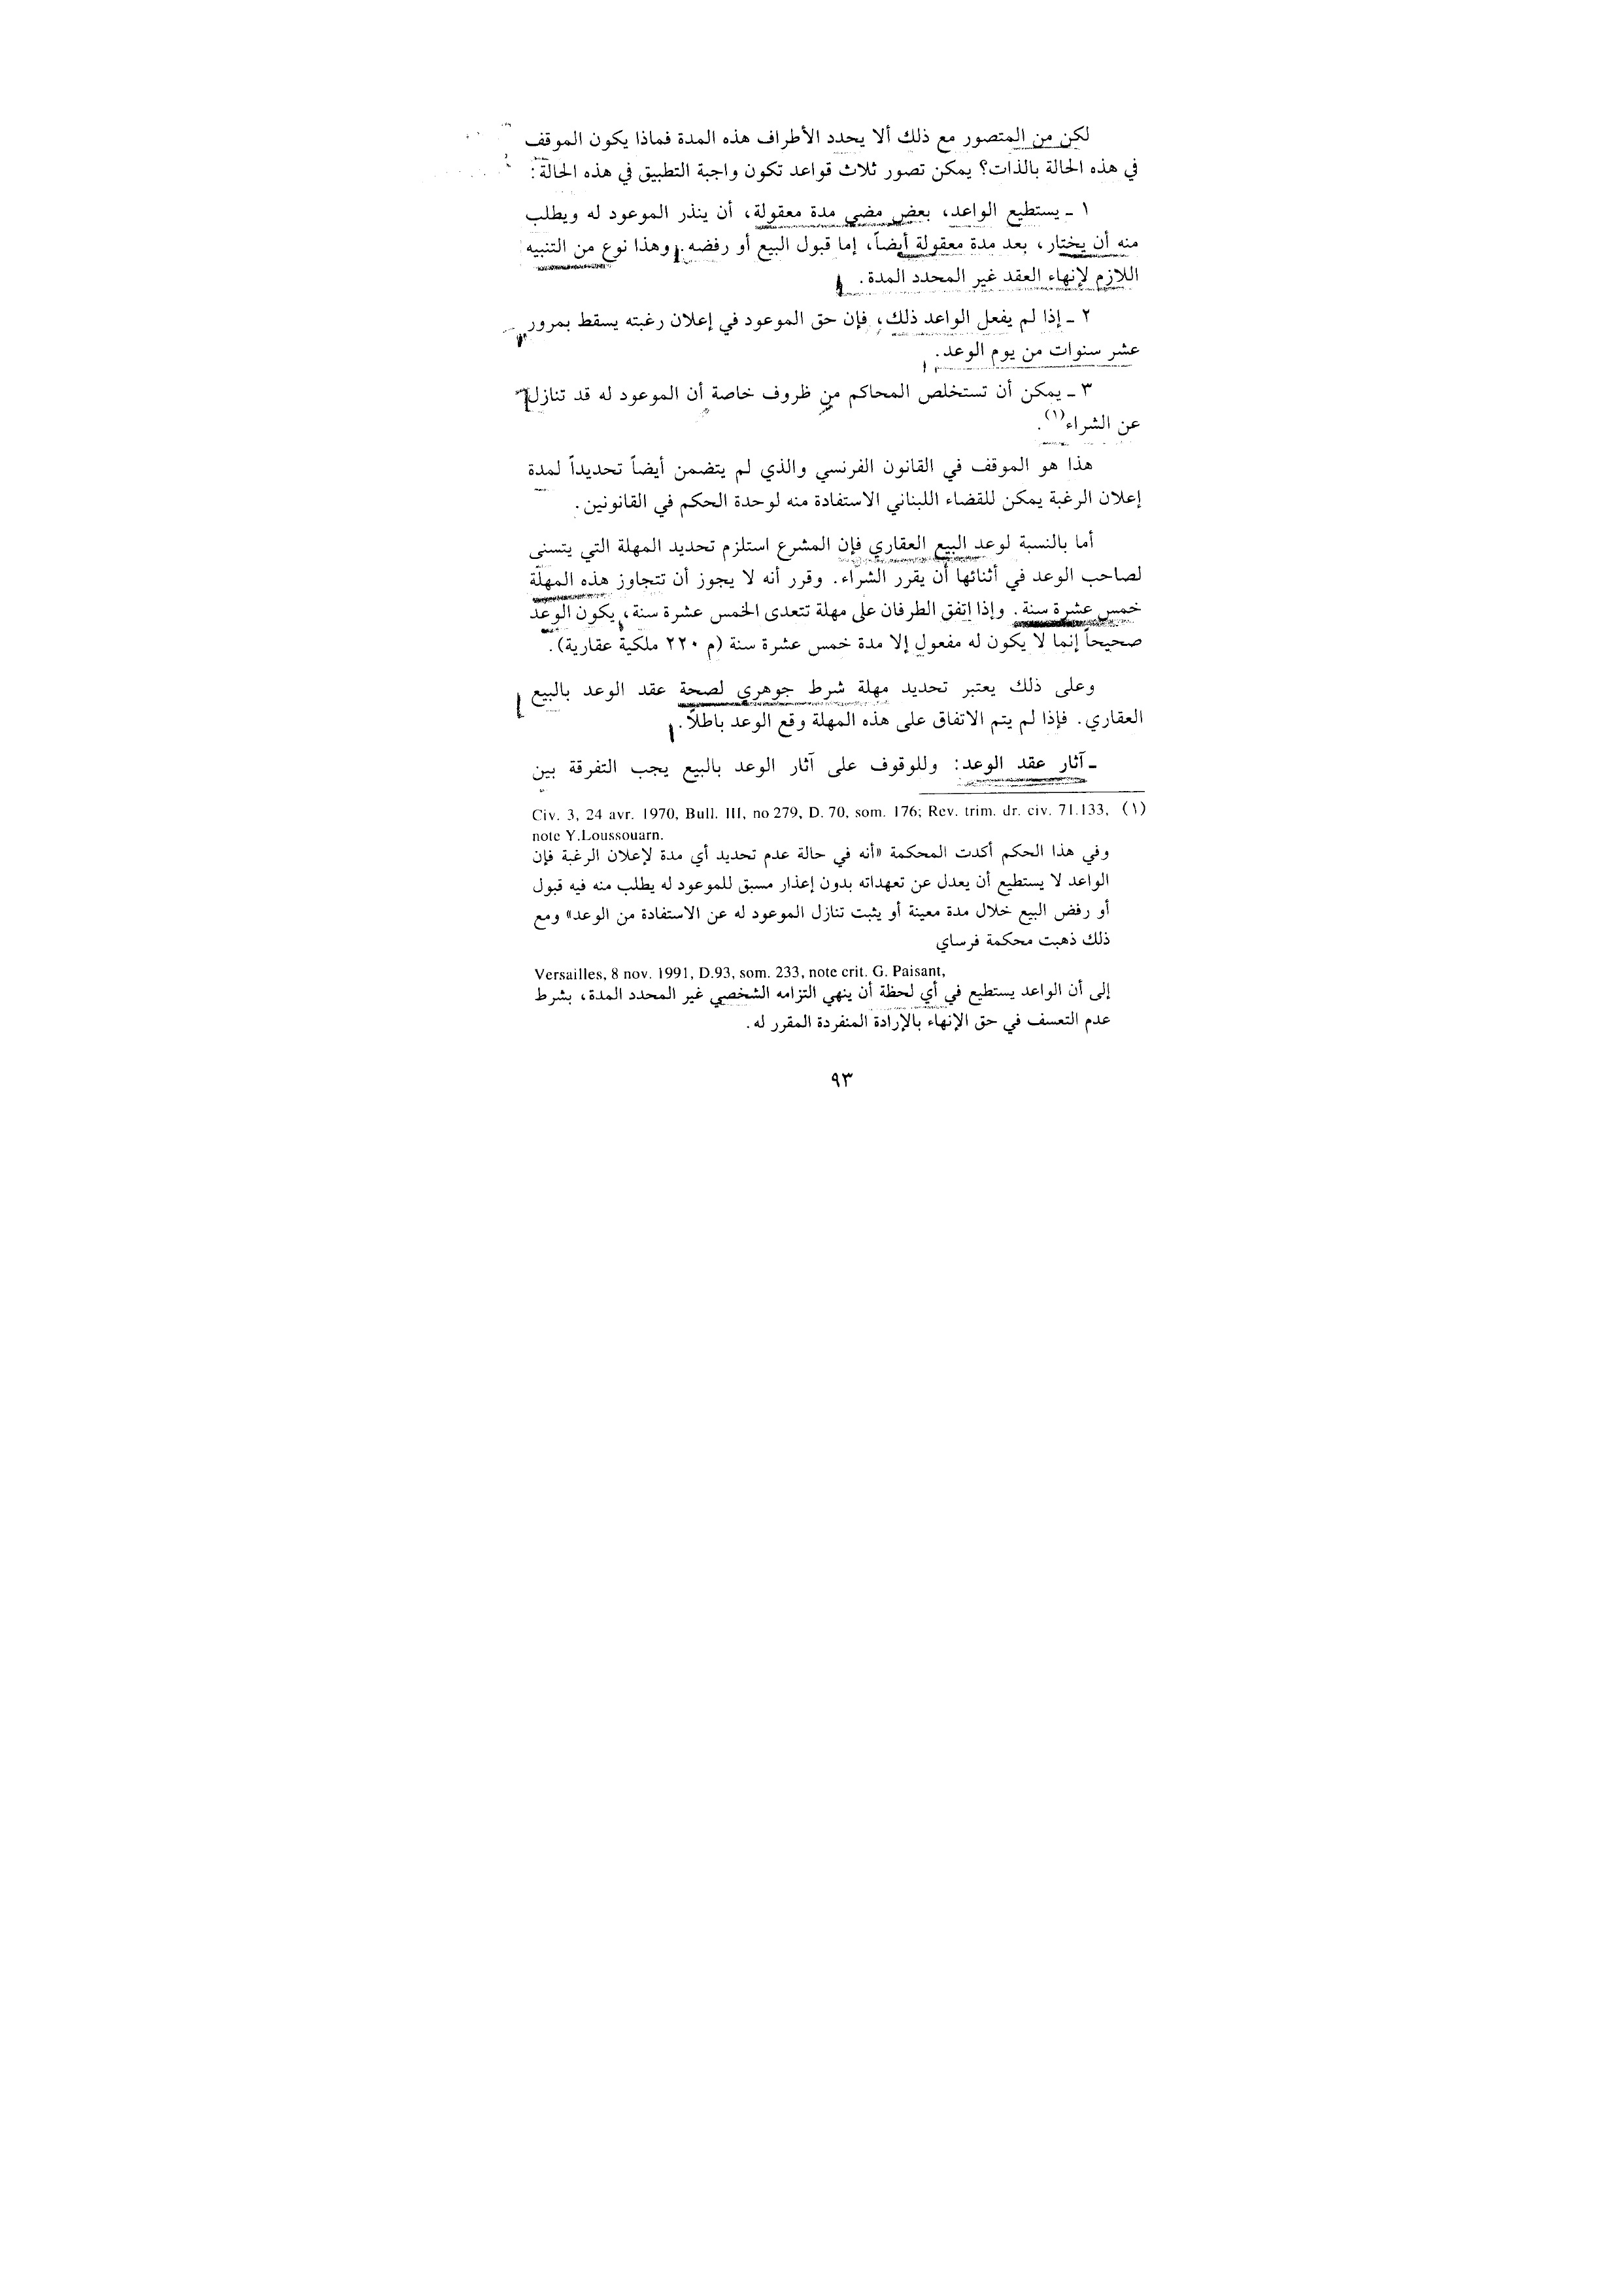 لكن من المتصور مع ذلك ألا يحدد الأطراف هذه المدة فماذا يكون الموقف
في هذه الحالة بالذات؟ يمكن تصور ثلاث قواعد تكون واجبة التطبيق في هذه الحالة:
١ ـ يستطيع الواعد، بعض مضي مدة معقولة، أن ينذر الموعود له ويطلب
منه أن يختار، بعد مدة معقولة أيضاً، إما قبول البيع أو رفضه. وهذا نوع من التنبيه
اللازم لإنهاء العقد غير المحدد المدة.
٢ ـ إذا لم يفعل الواعد ذلك، فإن حق الموعود في إعلان رغبته يسقط بمرور
عشر سنوات من يوم الوعد.
٣ ـ يمكن أن تستخلص المحاكم من ظروف خاصة أن الموعود له قد تنازل
عن الشراء(١).
هذا هو الموقف في القانون الفرنسي والذي لم يتضمن أيضاً تحديداً لمدة
إعلان الرغبة يمكن للقضاء اللبناني الاستفادة منه لوحدة الحكم في القانونين.
أما بالنسبة لوعد البيع العقاري فإن المشرع استلزم تحديد المهلة التي يتسنى
لصاحب الوعد في أثنائها أن يقرر الشراء. وقرر أنه لا يجوز أن تتجاوز هذه المهلة
خمس عشرة سنة. وإذا إتفق الطرفان على مهلة تتعدى الخمس عشرة سنة، يكون الوعد
صحيحاً إنما لا يكون له مفعول إلا مدة خمس عشرة سنة (م ٢٢٠ ملكية عقارية).
وعلى ذلك يعتبر تحديد مهلة شرط جوهري لصحة عقد الوعد بالبيع
العقاري. فإذا لم يتم الاتفاق على هذه المهلة وقع الوعد باطلاً.
ـ آثار عقد الوعد: وللوقوف على آثار الوعد بالبيع يجب التفرقة بين
(١) Civ. 3, 24 avr. 1970, Bull. III, no 279, D. 70, som. 176; Rev. trim. dr. civ. 71.133,
note Y.Loussouarn.
وفي هذا الحكم أكدت المحكمة «أنه في حالة عدم تحديد أي مدة لإعلان الرغبة فإن
الواعد لا يستطيع أن يعدل عن تعهداته بدون إعذار مسبق للموعود له يطلب منه فيه قبول
أو رفض البيع خلال مدة معينة أو يثبت تنازل الموعود له عن الاستفادة من الوعد» ومع
ذلك ذهبت محكمة فرساي
Versailles, 8 nov. 1991, D.93, som. 233, note crit. G. Paisant,
إلى أن الواعد يستطيع في أي لحظة أن ينهي التزامه الشخصي غير المحدد المدة، بشرط
عدم التعسف في حق الإنهاء بالإرادة المنفردة المقرر له.
٩٣